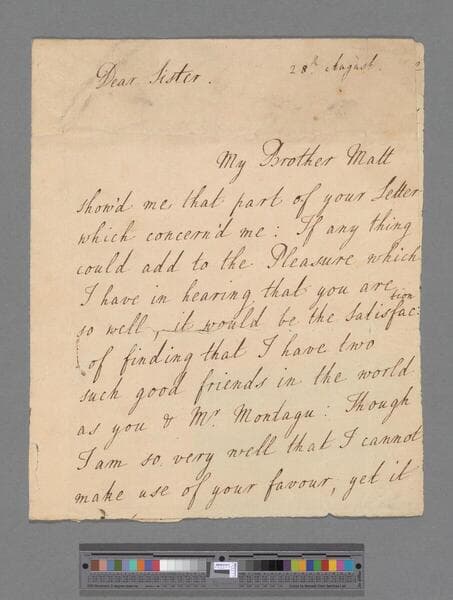 Dear Sister.
28th August.
My Brother Matt
show'd me that part of your Letter
which concern'd me: If any thing
could add to the Pleasure which
I have in hearing that you are
so well, it would be the Satisfac:tion
of finding that I have two
such good friends in the world
as you & Mr. Montagu: Though
I am so very well that I cannot
make use of your favour, yet it